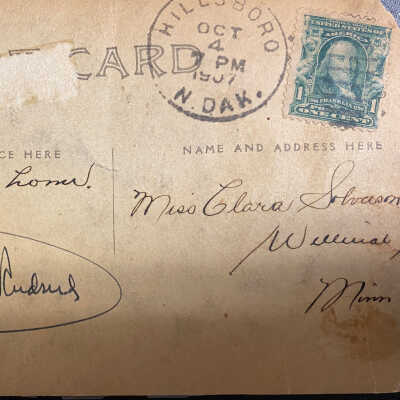 HILLSBORO
OCT
4
7 PM
1907
N. DAK.
CARD
UNITED STATES OF AMERICA
1 FRANKLIN 1
ONE CENT
CE HERE
NAME AND ADDRESS HERE
home.
Miss Clara Solvason
Minn